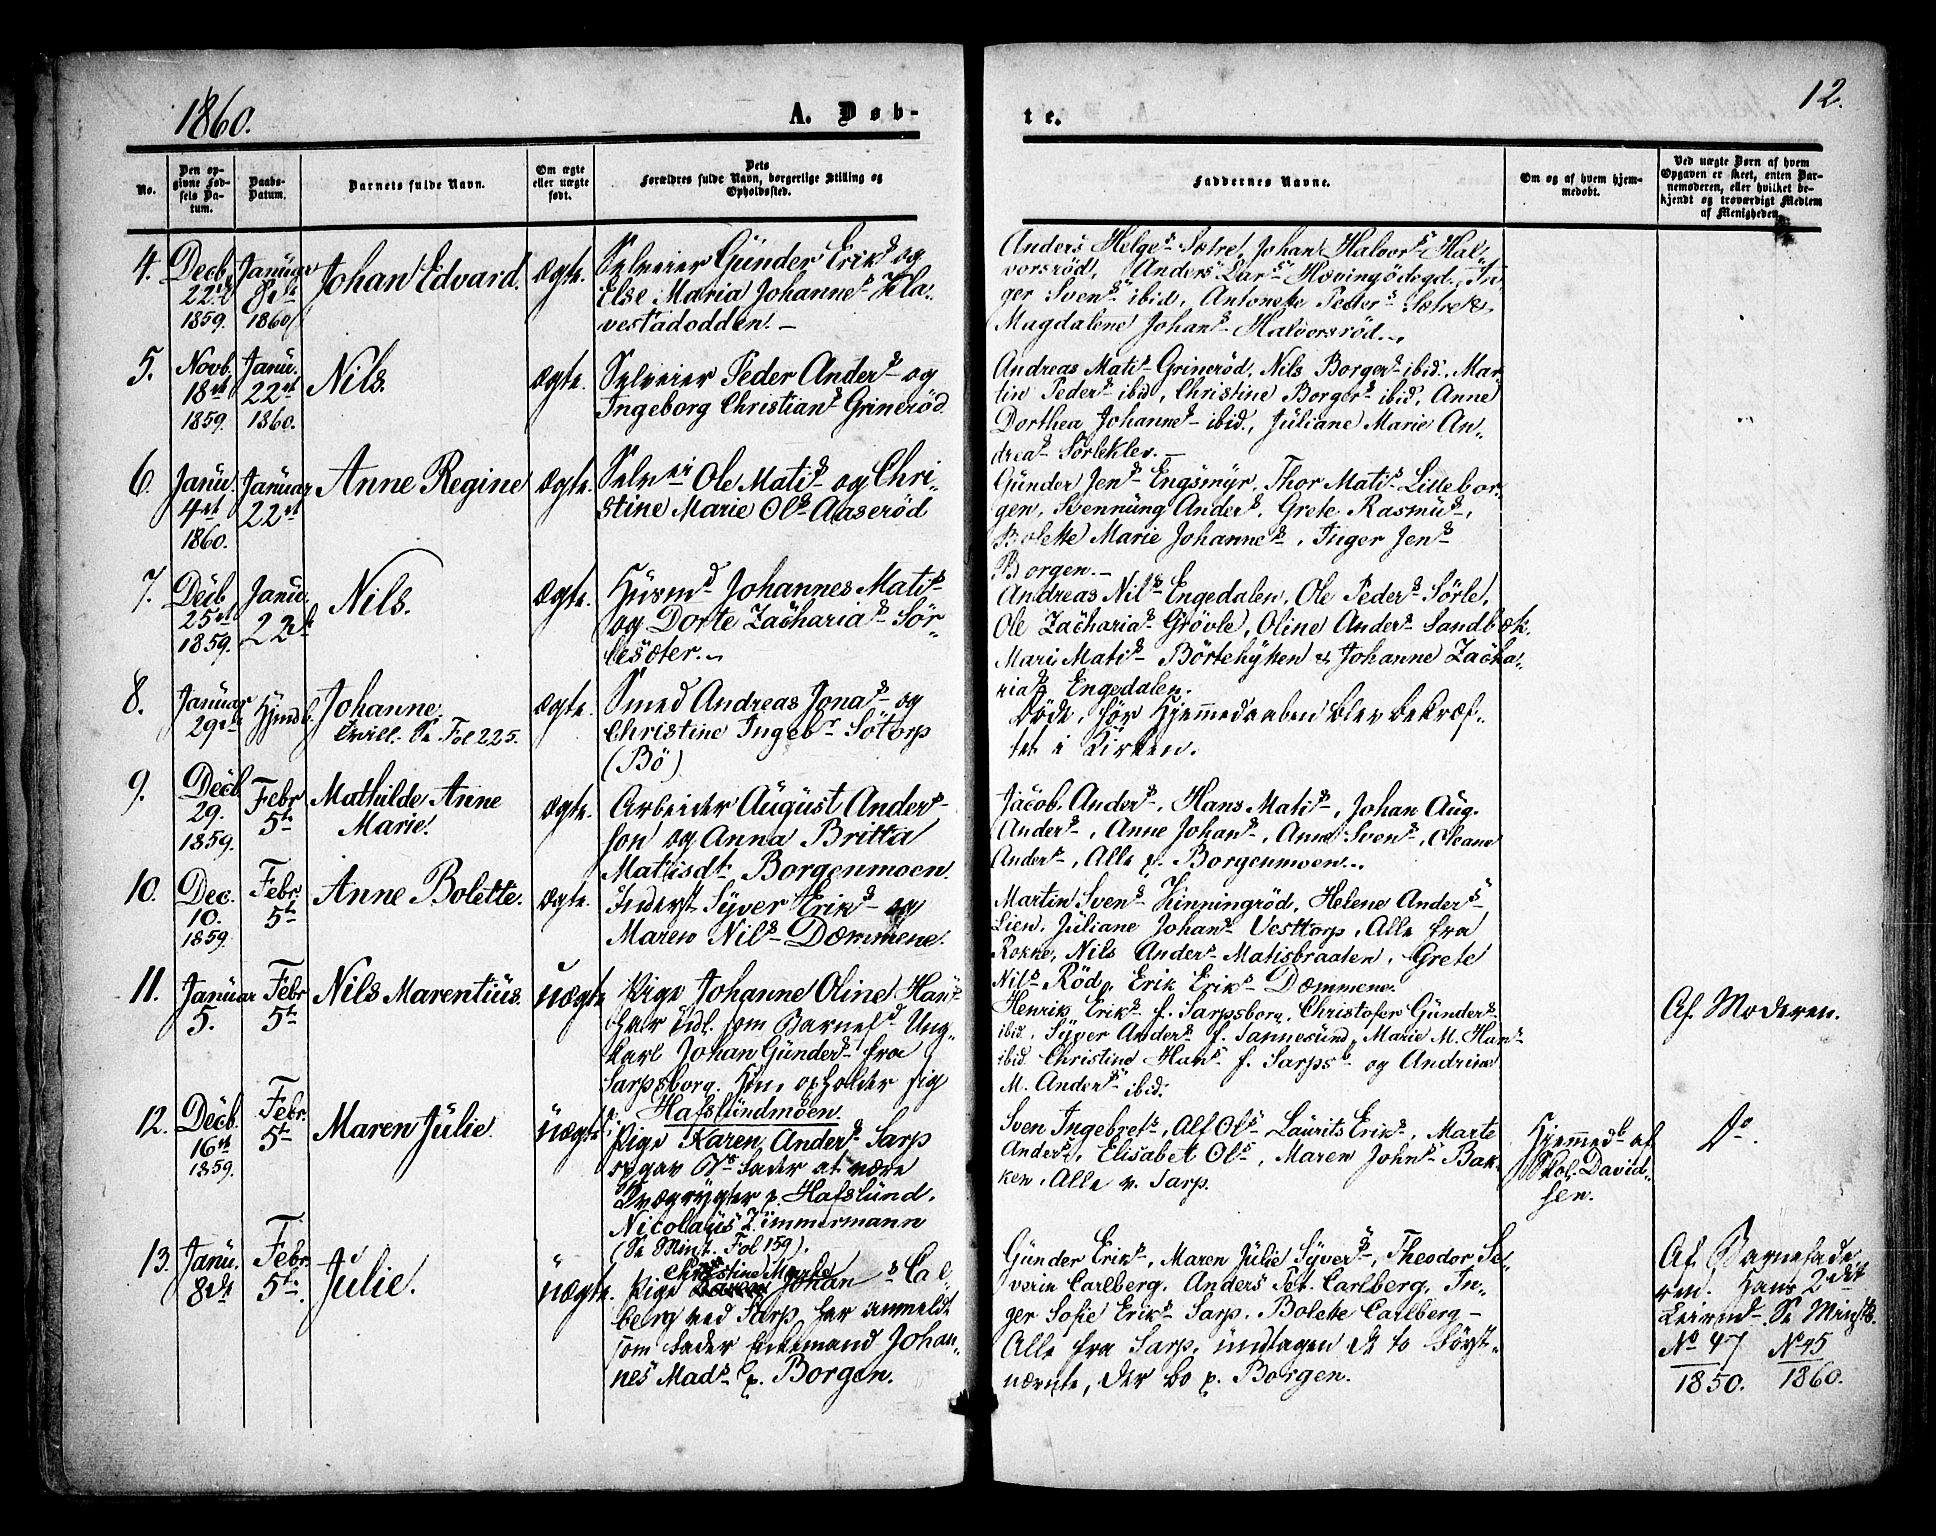 1860.
A. Døb-
te.
12.
No.
Den op-
givne Fød-
sels Da-
tum.
Daabs-
Datum.
Barnets fulde Navn.
Om ægte
eller uægte
født.
Dets
Forældres fulde Navn, borgerlige Stilling og
Opholdssted.
Faddernes Navne.
Om og af hvem hjem-
medøbt.
Ved uægte Børn af hvem
Opgaven er skeet, enten Bar-
nemoderen, eller hvilket be-
kjendt og troværdigt Medlem
af Menigheden.
4.
Decb.
22de
1859.
Januar
8de
1860
Johan Edvard.
ægte.
Selveier Günder Eriks og
Else Maria Johannes Kla-
vestadodden. –
Anders Helges Sætre, Johan Halvors Hal-
vorsrød, Anders Lars Høvingödegd.
ger Svens ibid, Antonette Peders Sætre &
Magdalene Johans Halvorsröd.
5.
Novb.
18de
1859.
Janu.
22de
1860.
Nils.
ægte.
Selveier Peder Anders og
Ingeborg Christians Grineröd.
Andreas Matis Grineröd, Nils Borgers ibid., Mar-
tin Peders ibid, Christine Borgers ibid, Anne
Dorthea Johannes ibid., Juliane Marie An-
dreas Sörlekler. –
6.
Janu.
4de
1860.
Januar
22de
Anne Regine
ægte.
Selvei Ole Matis og Chri-
stine Marie Ols Aaseröd
Günder Jens Engsmyr, Thor Matis Lillebor-
gen, Svennüng Anders, Grete Rasmüs,
Bolette Marie Johannes, Inger Jens
Borgen. –
7.
Decb
25de
1859.
Janu.
22de
Nils.
ægte.
Hüsmd Johannes Matis
og Dorte Zacharias Sör-
lesæter. –
Andreas Nils Engedalen, Ole Peders Sörle,
Ole Zacharias Grövle, Oline Anders Sandbæk.
Mari Matis Börtehytten & Johanne Zacha-
rias Engedalen.
8.
Januar
29de
Hjmdb.
Johanne
Tvill. Se Fol 225.
ægte.
Smed Andreas Jonas og
Christine Ingebr Sötorp
(Bö)
Döde, før Hjemmedaaben blev bekræf-
tet i Kirken.
9.
Decb
29.
1859.
Febr
5te
Mathilde Anne
Marie.
ægte.
Arbeider August Anders-
son og Anna Britta
Matisdt Borgenmoen.
Jacob Anders, Hans Matis, Johan Aug.
Anders, Anne Johans, Anne Svens, Oleane
Anders, Alle p. Borgenmoen. –
10.
Dec.
10.
1859.
Febr.
5te
Anne Bolette.
ægte.
Inderst Syver Eriks og
Maren Nils Dæmmene.
Martin Svens Kinningröd, Helene Anders
Lien, Juliane Johans Vesttorp, Alle fra
Rokke, Nils Anders Matisbraaten, Grete
Nils Röd, Erik Eriks Dæmmene.
11.
Januar
5.
Febr
5te
Nils Marentius.
uægte
Pige Johanne Oline Hans
har udl. som Barnefd Ung-
karl Johan Günders fra
Sarpsborg. Hun opholder sig
p. Hafslündmoen.
Henrik Eriks f. Sarpsborg, Christofer Günders
ibid., Syver Anders f. Sannesund, Marie M. Hans
ibid. Christine Hans f. Sarpsb og Andrine
M. Anders ibid.
Af Moderen.
12.
Decb.
16de
1859.
Febr.
5te
Maren Julie.
uægte
Pige Karen Anders Sarp
opgav fader at være
Qvægrygter p. Hafslünd,
Nicolaüs Zimmermann
(Se Minst. Fol 159).
Sven Ingebrets, Alf Ols, Laurits Eriks, Marte
Anders, Elisabet Ols, Maren Johns Bak-
ken, Alle v. Sarp.
Hjemmedb af
Skol. David-
sen.
Do.
13.
Janu.
8de
Febr.
5te.
Julie.
uægte.
Christine Marte
Pige Johans Cal-
berg ved Sarp har anmeldt
som fader Enkemand Johan-
nes Mads p. Borgen.
Günder Eriks, Maren Julie Syvers, Theodor Se-
verin Carlberg, Anders Pet. Carlberg, In-
ger Sofie Eriks Sarp, Bolette Carlberg –
Alle fra Sarp, undtagen de to först-
nævnte, der bo p. Borgen.
Af Barnefade-
ren. Hans 2det
Leiermd. Se Minstb.
No 47 No 45
1850. 1860.